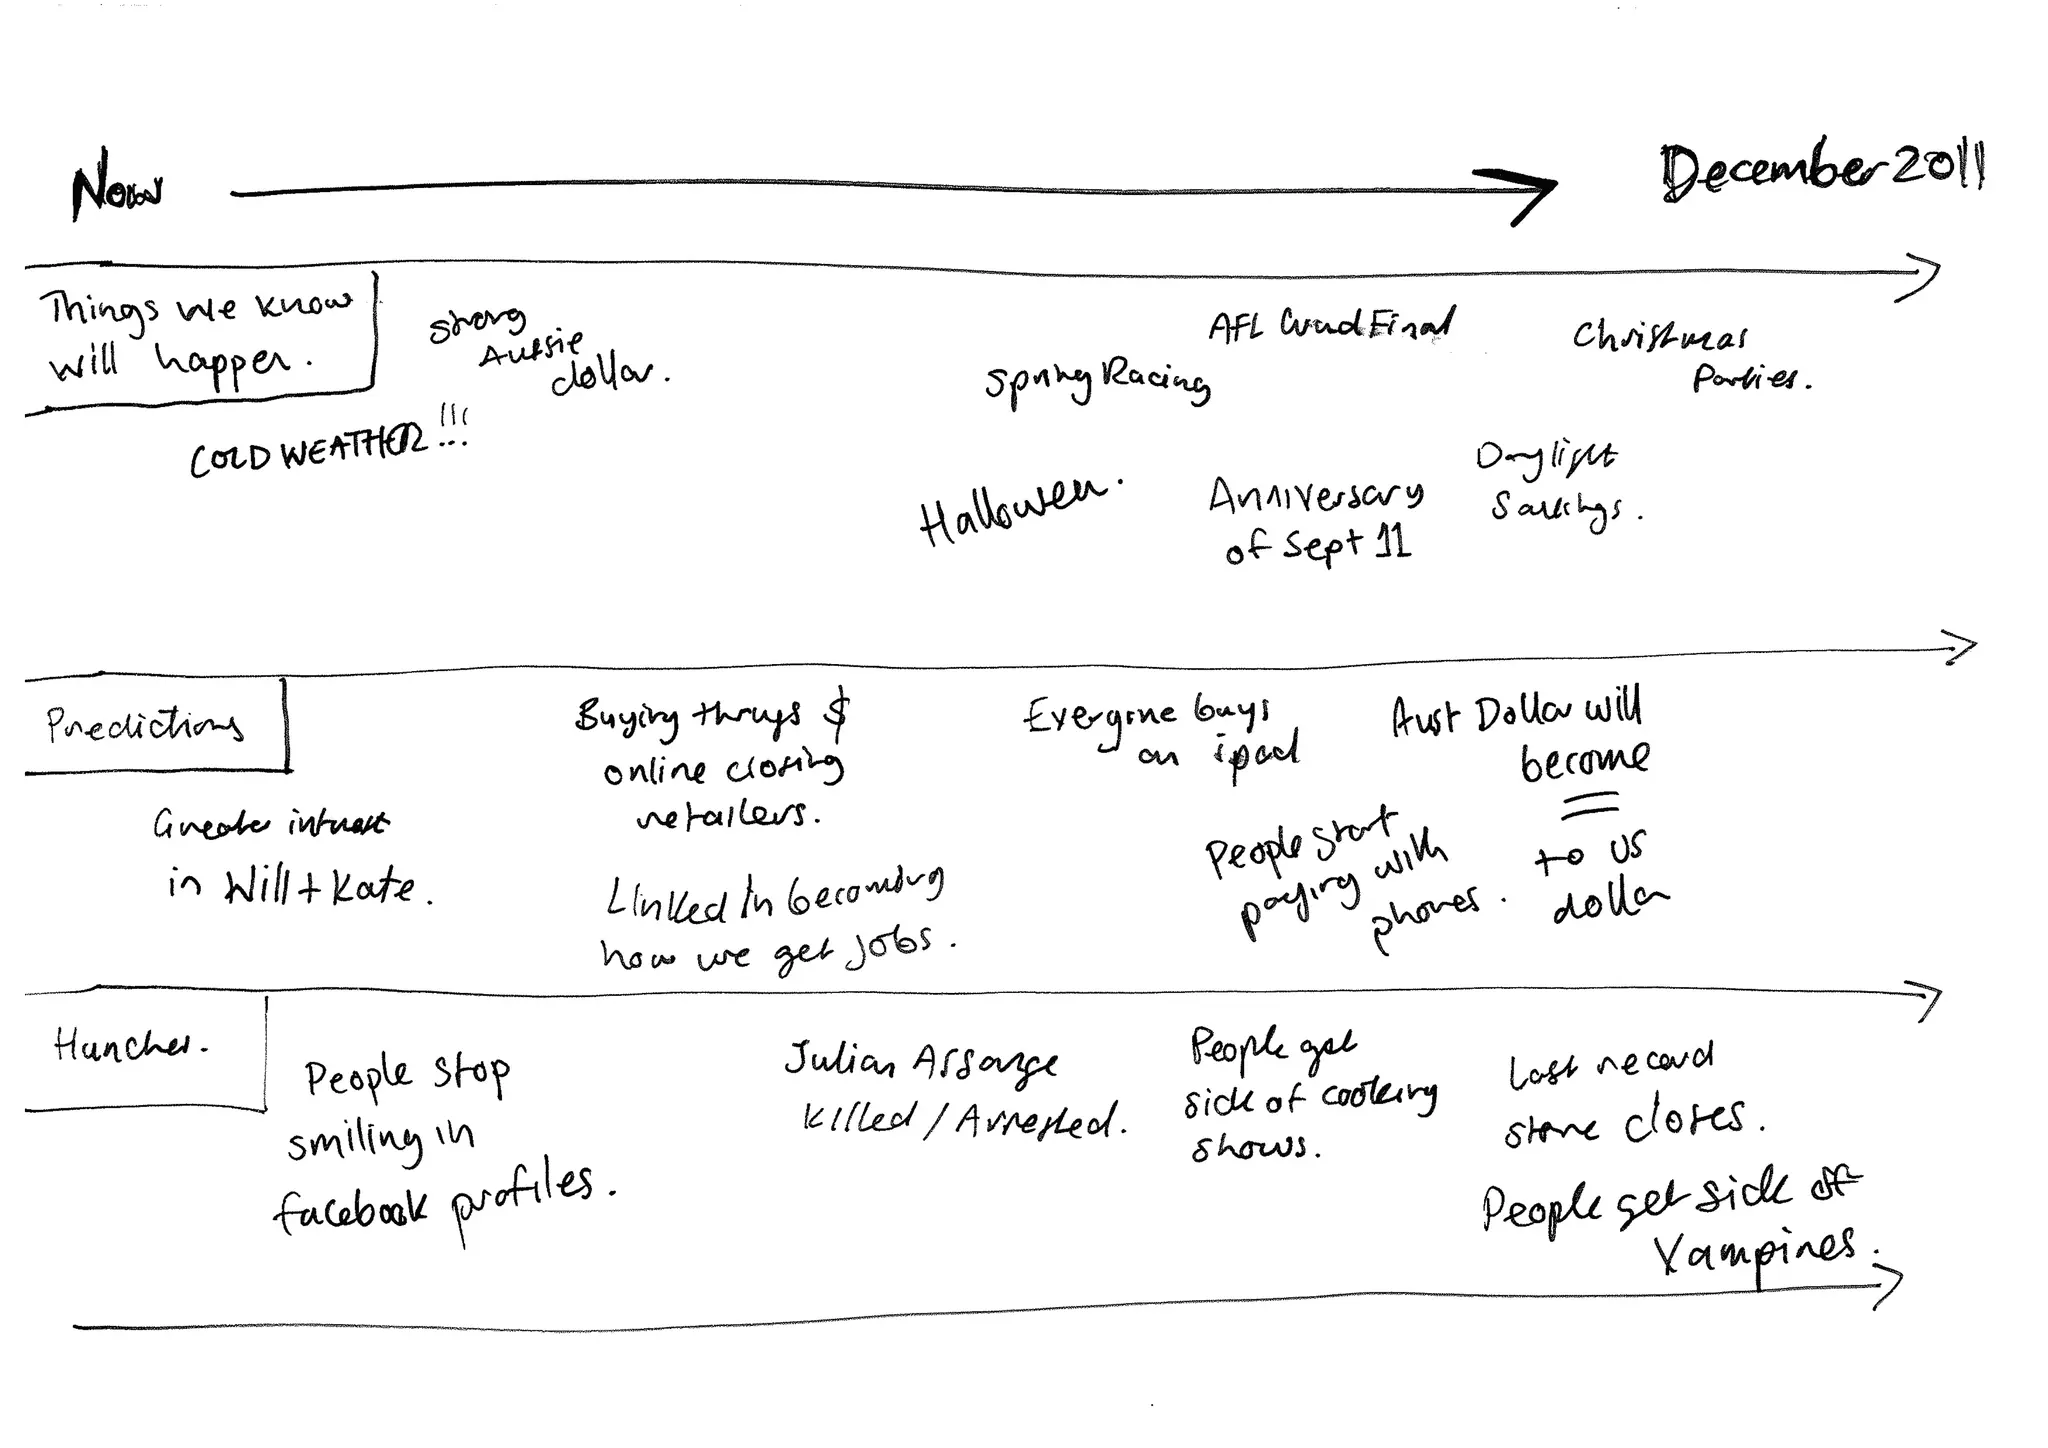 Now
December 2011
Things we know
will happen.
Strong
Aussie
dollar.
COLD WEATHER!!!
Spring Racing
AFL Grand Final
Christmas
Parties.
Halloween.
Anniversary
of Sept 11
Daylight
Savings.
Predictions
Greater interest
in Will + Kate.
Buying things $
online closing
retailers.
LinkedIn becoming
how we get jobs.
Everyone buys
an ipad
People start
paying with
phones.
Aust Dollar will
become
=
to US
dollar
Hunches.
People stop
smiling in
facebook profiles.
Julian Assange
killed / Arrested.
People get
sick of cooking
shows.
Last record
store closes.
People get sick of
Vampires.